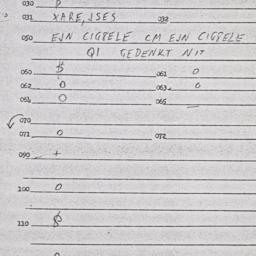 030 P
031 XARE, ISES 032
050 EJN CIGPELE CM EJN CIGPELE
QI GEDENKT NIT
060 $ 061 0
062 0 063 0
064 0 065 —
070
071 0 072
090 +
100 0
110 $